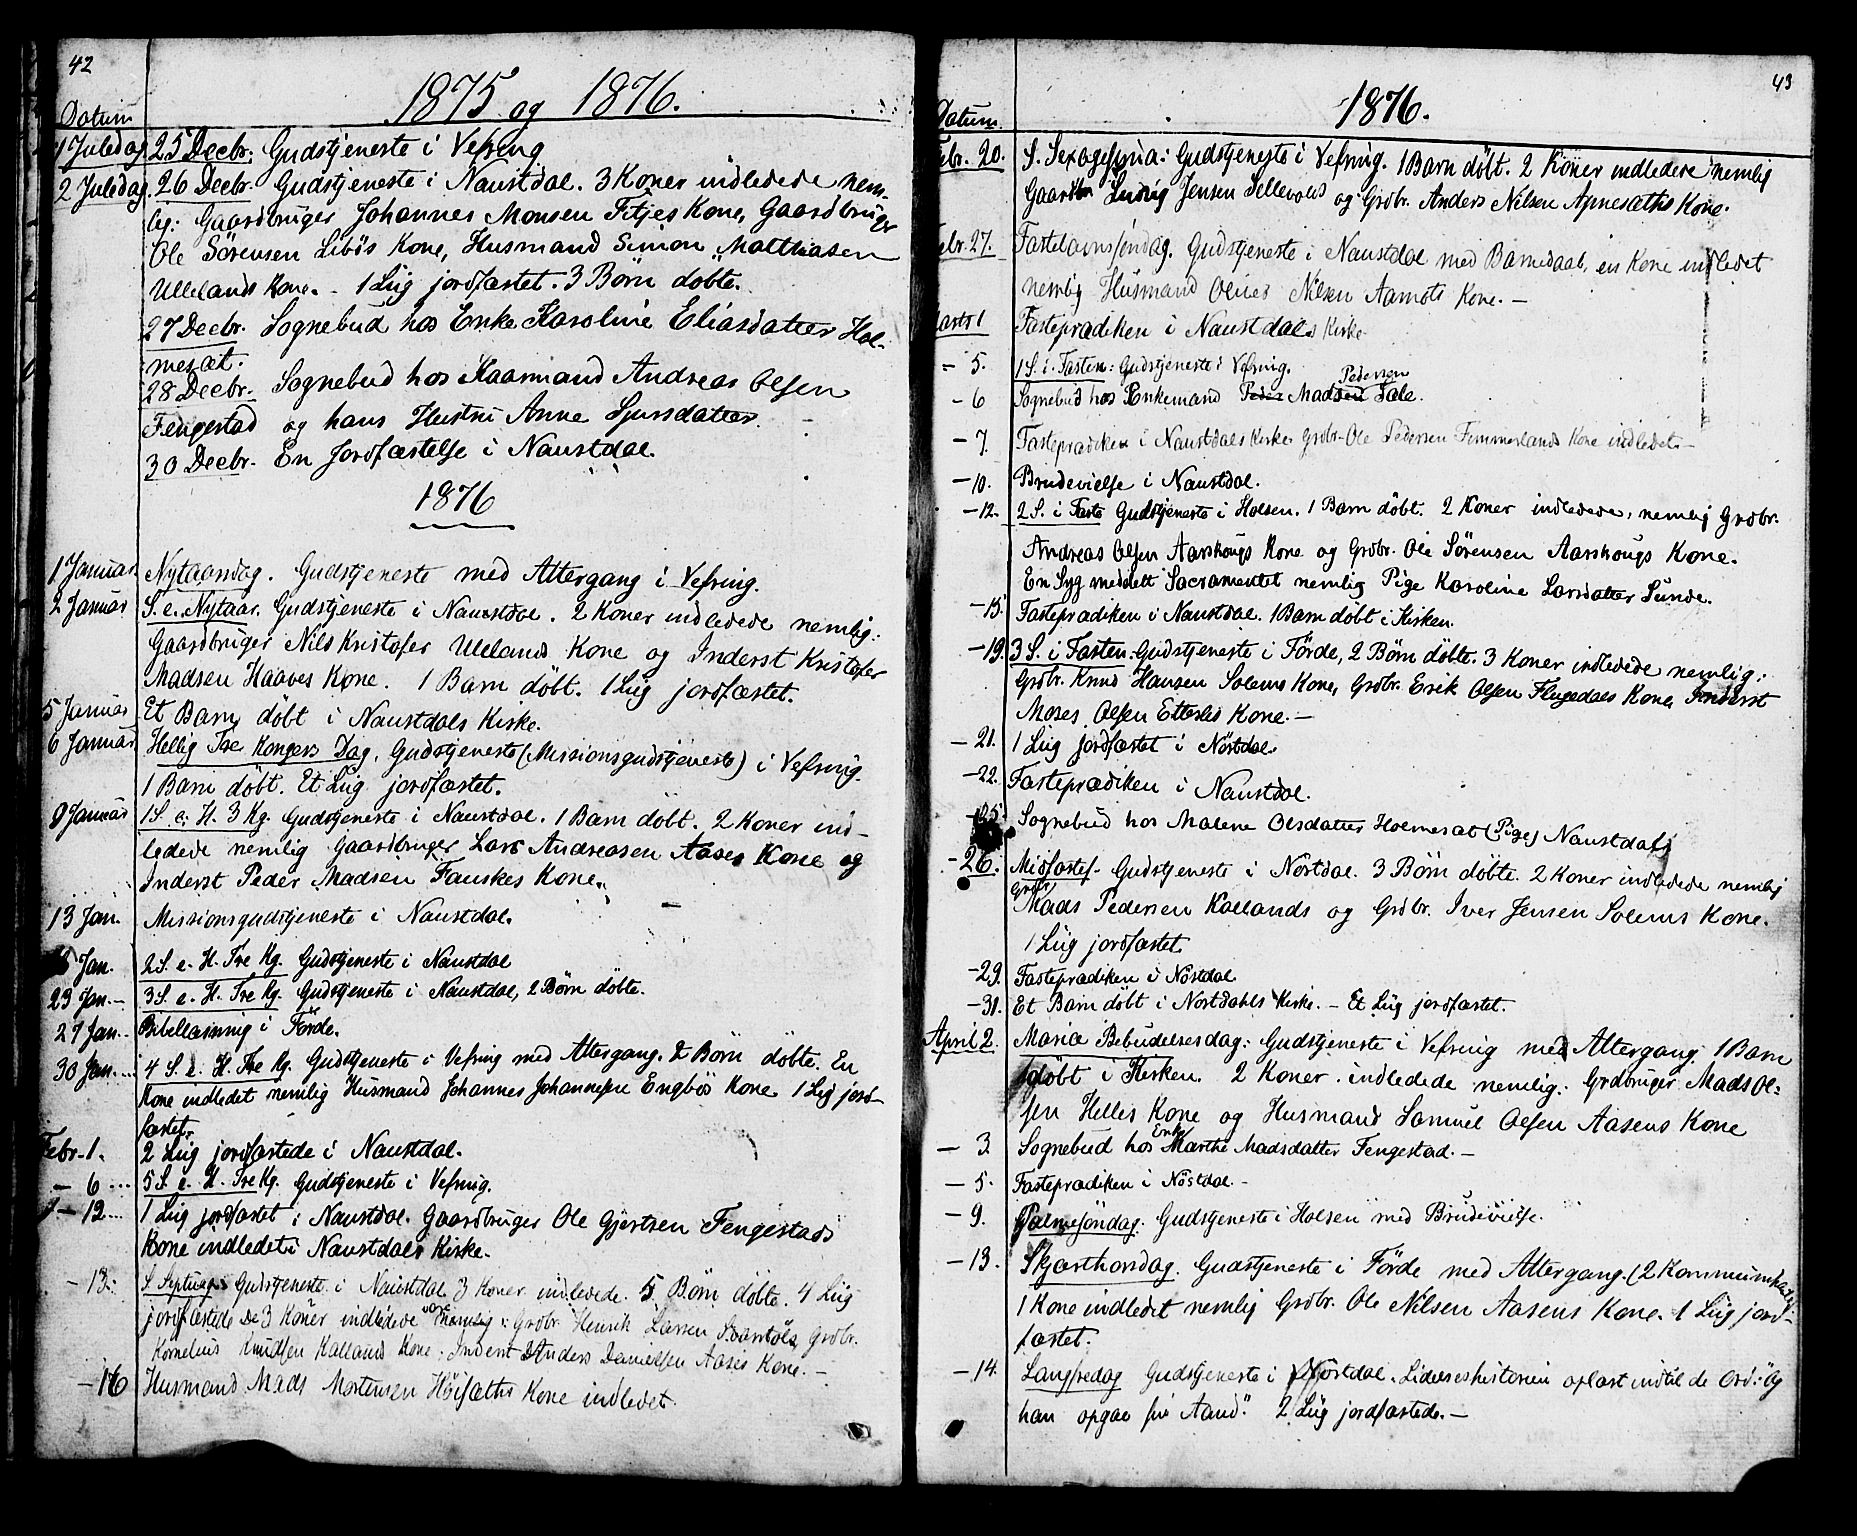 42
1875 og 1876.
Datum
1 Juledag 25 Decbr: Gudstjeneste i Vefring
2 Juledag. 26 Decbr. Gudstjeneste i Naustdal. 3 Koner indledede nem-
lig: Gaardbruger Johannes Monsen Fitjes Kone, Gaardbruger
Ole Sörensen Libös Kone, Husmand Simon Matthiasen
Ullelands Kone. - 1 Liig jordfæstet. 3 Börn döbte.
27 Decbr. Sognebud hos Enke Karoline Eliasdatter Hol-
mesæt.
28 Decbr. Sognebud hos Kaarmand Andreas Olsen
Fengestad og hans Hustru Anne Sjursdatter.
30 Decbr. En Jordfæstelse i Naustdal.
1876
1 Januar Nytaarsdag. Gudstjeneste med Altergang i Vefring.
2 Januar S. e. Nytaar. Gudstjeneste i Naustdal. 2 Koner indledede nemlig:
Gaardbruger Nils Kristofer Ullelands Kone og Inderst Kristofer
Madsen Haaves Kone. 1 Barn döbt. 1 Liig jordfæstet.
5 Januar Et Barn döbt i Naustdals Kirke.
6 Januar Hellig Tre Kongers Dag. Gudstjeneste (Missionsgudstjeneste) i Vefring.
1 Barn döbt. Et Liig jordfæstet.
9 Januar 1 S. e. H. 3 Kg. Gudstjeneste i Naustdal. 1 Barn döbt. 2 Koner ind-
ledede nemlig Gaardbruger Lars Andreasen Aases Kone og
Inderst Peder Madsen Fauskes Kone.
13 Jan. Missionsgudstjeneste i Naustdal.
Jan. 2 S. e. H. Tre Kg. Gudstjeneste i Naustdal
23 Jan. - 3 S. e. H. Tre Kg. Gudstjeneste i Naustdal, 2 Börn döbte.
27 Jan. Bibellæsning i Förde.
30 Jan. 4 S. e. H. Tre Kg. Gudstjeneste i Vefring med Altergang. 2 Börn döbte. En
Kone indledet nemlig Husmand Johannes Johannesen Engebös Kone 1 Lig jord-
fæstet.
Febr. 1. 2 Liig jordfæstede i Naustdal.
- 6 ... 5 S. e. H. Tre Kg. Gudstjeneste i Vefring.
- 12 ... 1 Liig jordfæstet i Naustdal. Gaardbruger Ole Gjertsen Fengestads
Kone indledet i Naustdals Kirke.
- 13: S. Septuag. Gudstjeneste i Naustdal 3 Koner indledede. 5 Börn döbte. 4 Liig
jordfæstede De 3 Koner indledede vare nemlig: Grdbr. Henrik Larsen Grdbr.
Kornelius Knudsen Kalland Kone, Inderst Anders Danielsen Aases Kone. -
- 16 Husmand Mads Mortensen Höisæths Kone indledet.
43
1876.
Datum.
Febr. 20. S. Sexagesima: Gudstjeneste i Vefring. 1 Barn döbt. 2 Koner indledede nemlig
Ludvig Jensen Sellevolds og Grdbr. Anders Nilsen Apnesæths Kone.
Febr. 27. Fastelavnssöndag. Gudstjeneste i Naustdal med Barnedaab, en Kone indledet
nemlig Husmand Olines Nilsen Aamots Kone. -
Marts 1 Fasteprædiken i Naustdals Kirke
- 5. 1 S. i Fasten: Gudstjeneste i Vefring.
- 6 Sognebud hos Enkemand Peder Madsen Pedersen Tale.
- 7. Fasteprædiken i Naustdals Kirke Grdbr. Ole Pedersen Fimmerlands Kone indledet. -
- 10. Brudevielse i Naustdal.
- 12. 2 S. i Faste Gudstjeneste i Holsen. 1 Barn döbt. 2 Koner indledede, nemlig Grdbr.
Andreas Olsen Aarskougs Kone og Grdbr. Ole Sörensen Aarskougs Kone.
En Syg meddelt Sacramentet nemlig Pige Karoline Larsdatter Sunde.
- 15 Fasteprædiken i Naustdal. 1 Barn döbt i Kirken.
- 19. 3 S. i Fasten. Gudstjeneste i Förde, 2 Börn döbte. 3 Koner indledede nemlig:
Grdbr. Knud Hansen Solems Kone, Grdbr. Erik Olsen Flugedals Kone Inderst
Moses Olsen Etterlis Kone. -
- 21. 1 Liig jordfæstet i Nöstdal
- 22. Fasteprædiken i Naustdal.
25. Sognebud hos Malene Olsdatter Holmesæt (Pige) Naustdal
- 26. Midfastes. Gudstjeneste i Nöstdal. 3 Börn döbte. 2 Koner indledede nemlig
Grdbr. Mads Pedersen Kallands og Grdbr. Iver Jensen Solems Kone.
1 Liig jordfæstet.
- 29. Fasteprædiken i Nöstdal
- 31. Et Barn döbt i Nöstdals Kirke. - Et Liig jordfæstet.
April 2. Mariæ Bebudelsesdag: Gudstjeneste i Vefring med Altergang. 1 Barn
döbt i Kirken. 2 Koner indledede nemlig: Grdbruger Mads Ol-
sen Helles Kone og Husmand Samuel Olsen Aasens Kone
- 3 Sognebud hos Enke Marthe Madsdatter Fengestad. -
- 5. Fasteprædiken i Nöstdal. -
- 9. Palmesöndag: Gudstjeneste i Holsen med Brudevielse.
- 13. Skjærthorsdag. Gudstjeneste i Förde med Altergang. (2 Kommunikanter)
1 Kone indledet nemlig Grdbr. Ole Nilsen Aasens Kone. 1 Liig jord-
fæstet.
- 14. Langfredag Gudstjeneste i Nöstdal. Lidelseshistorien oplæst indtil de Ord: "Og
han opgav sin Aand." 2 Liig jordfæstede. -